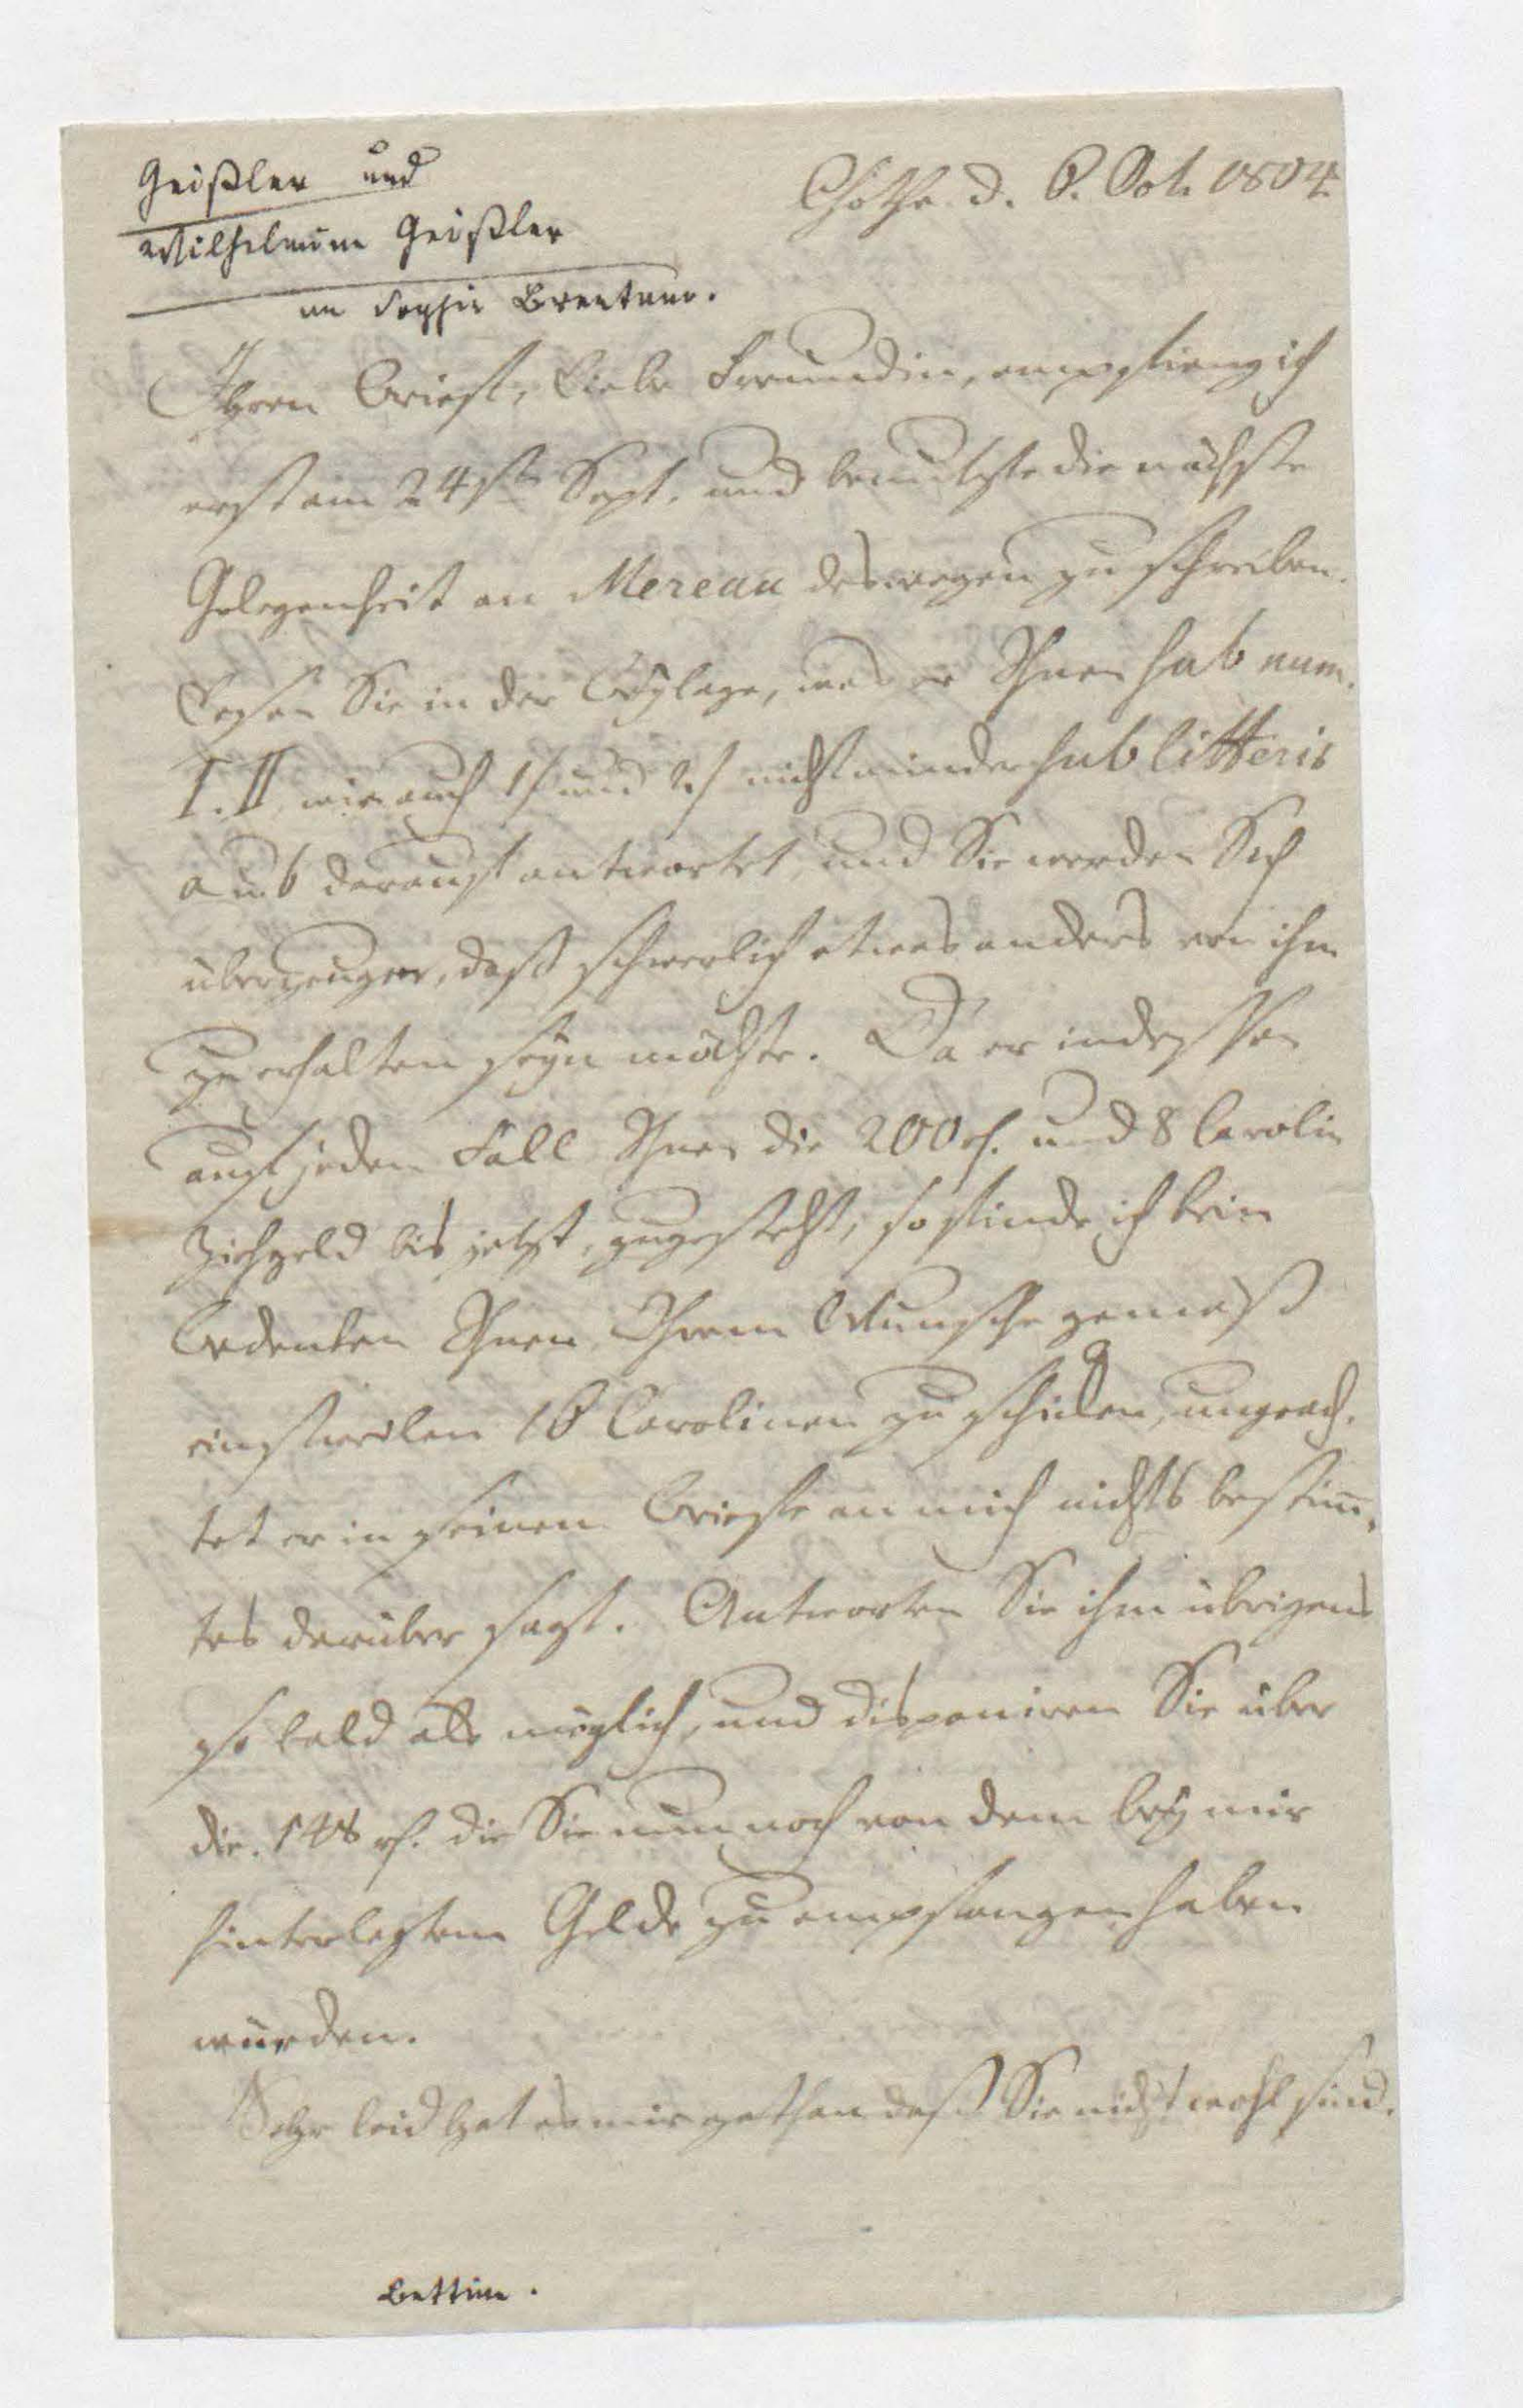 Geißler und
Wilhelmine Geißler
an Sophie Brentano.
Gotha d. 6. Oct. 1804.
Ihren Brief, liebe Freundin, empfieng ich
erst am 24st. Sept. und benutzte die nächste
Gelegenheit an Mereau deswegen zu schreiben.
Lesen Sie in der Beylage, was er Ihnen sub num.
I. II, wie auch 1/ und 2/ nicht minder sub litteris
a u. b darauf antwortet, und Sie werden Sich
überzeugen, daß schwerlich etwas anders von ihm
zu erhalten seyn möchte. Da er indessen
auf jeden Fall Ihnen die 200 rh. und 8 Carolin
Ziehgeld bis jetzt, zugesteht, so finde ich kein
Bedenken Ihnen, Ihrem Wunsche gemäß
einstweilen 16 Carolinen zu schicken, ungeach-
tet er in seinem Briefe an mich nichts bestim-
tes darüber sagt. Antworten Sie ihm übrigens
so bald als möglich, und disponiren Sie über
die 148 rh. die Sie nun noch von dem bey mir
hinterlegtem Gelde zu empfangen haben
würden.
Sehr leid hat es mir gethan daß Sie nicht wohl sind.
Bettine.